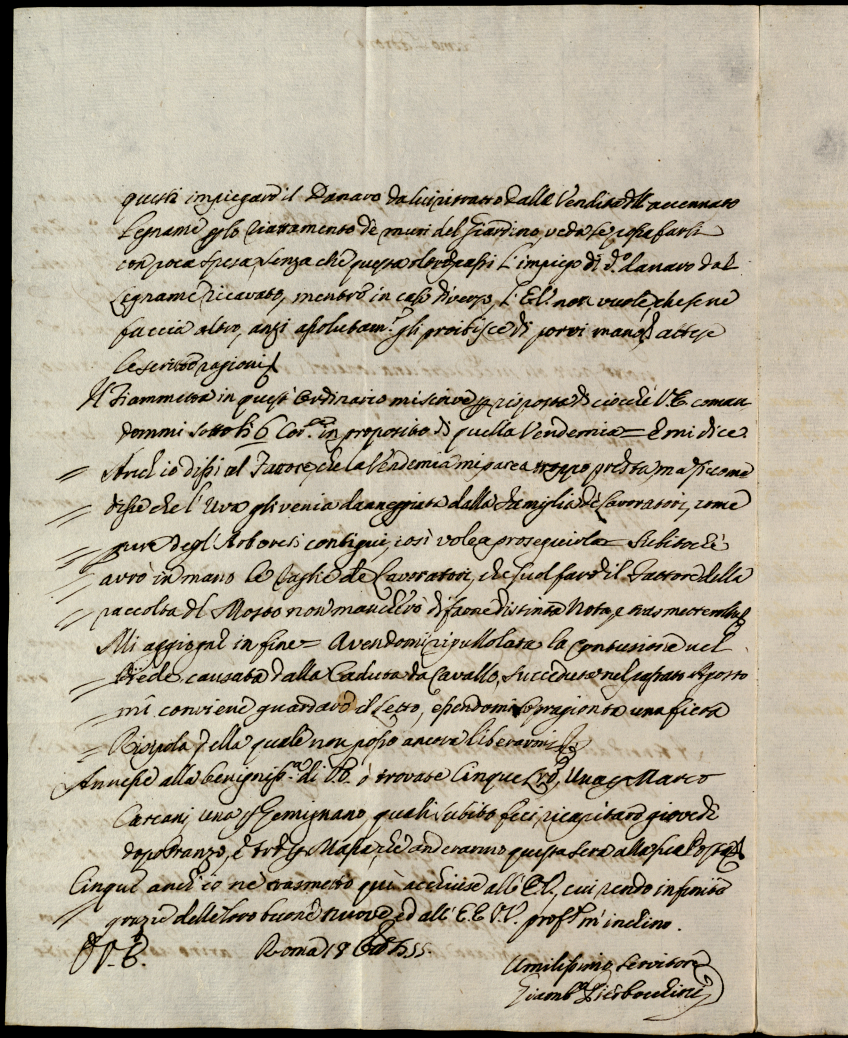 questi impiegare il Danaro da lui ritratto dalla Vendita dell' accennato
Legname p lo riattamento de muri del Giardino, veda se possa farsi
con poca spesa, senza che questa l'impiego di d.o danaro dal
Legname ricavato, mentre in caso diverso, l'E.V. non vuole, che se ne
faccia altro, anzi assolutam.te gli proibisce di porvi mano, attese
le scritte ragioni
Il Fiammetta in quest' Ordinario mi scrive p risposta di ciocchè V.E. coman
dommi sotto li 6 Cor.te in proposito di quella Vendemia = E mi dice
= Anch' io dissi al Fattore, che la Vendemia mi parea troppo presta, ma siccome
= disse che l'Uva gli venia danneggiata dalla famiglia de Lavoratori, come
= pure degl' Arboresi contigui, così volea proseguirla = Subito che
= avrò in mano le Taglie de Lavoratori, che suol fare il Fattore della
= raccolta del Mosto non mancherò di farne distinta Nota, e trasmetterla
Mi aggiogne in fine = Avendomi ripullolata la contusione nel
= Piede, causata dalla Caduta da Cavallo, succeduta nel passato Agosto
= mi conviene guardare il Letto, essendomi sopragionta una fiera
= Risipola della quale non posso ancora liberarmi
Annesse alla benigniss.ma di V.E. ò trovate Cinque Lre, Una p Marco
Carcani, una p Gemignano, quali subito feci ricapitare giovedì
dopo Pranzo, e tre p Massa, che anderanno questa sera alla sua Posta
Cinque anch' io ne trasmetto quì acchiuse all' E.V., cui rendo infinite
grazie delle Loro buone nuove, ed all' E.E.V.V. prof.te m' inclino.
D V.E. Roma 18 55.
Umilissimo Servitore
Giamb.a